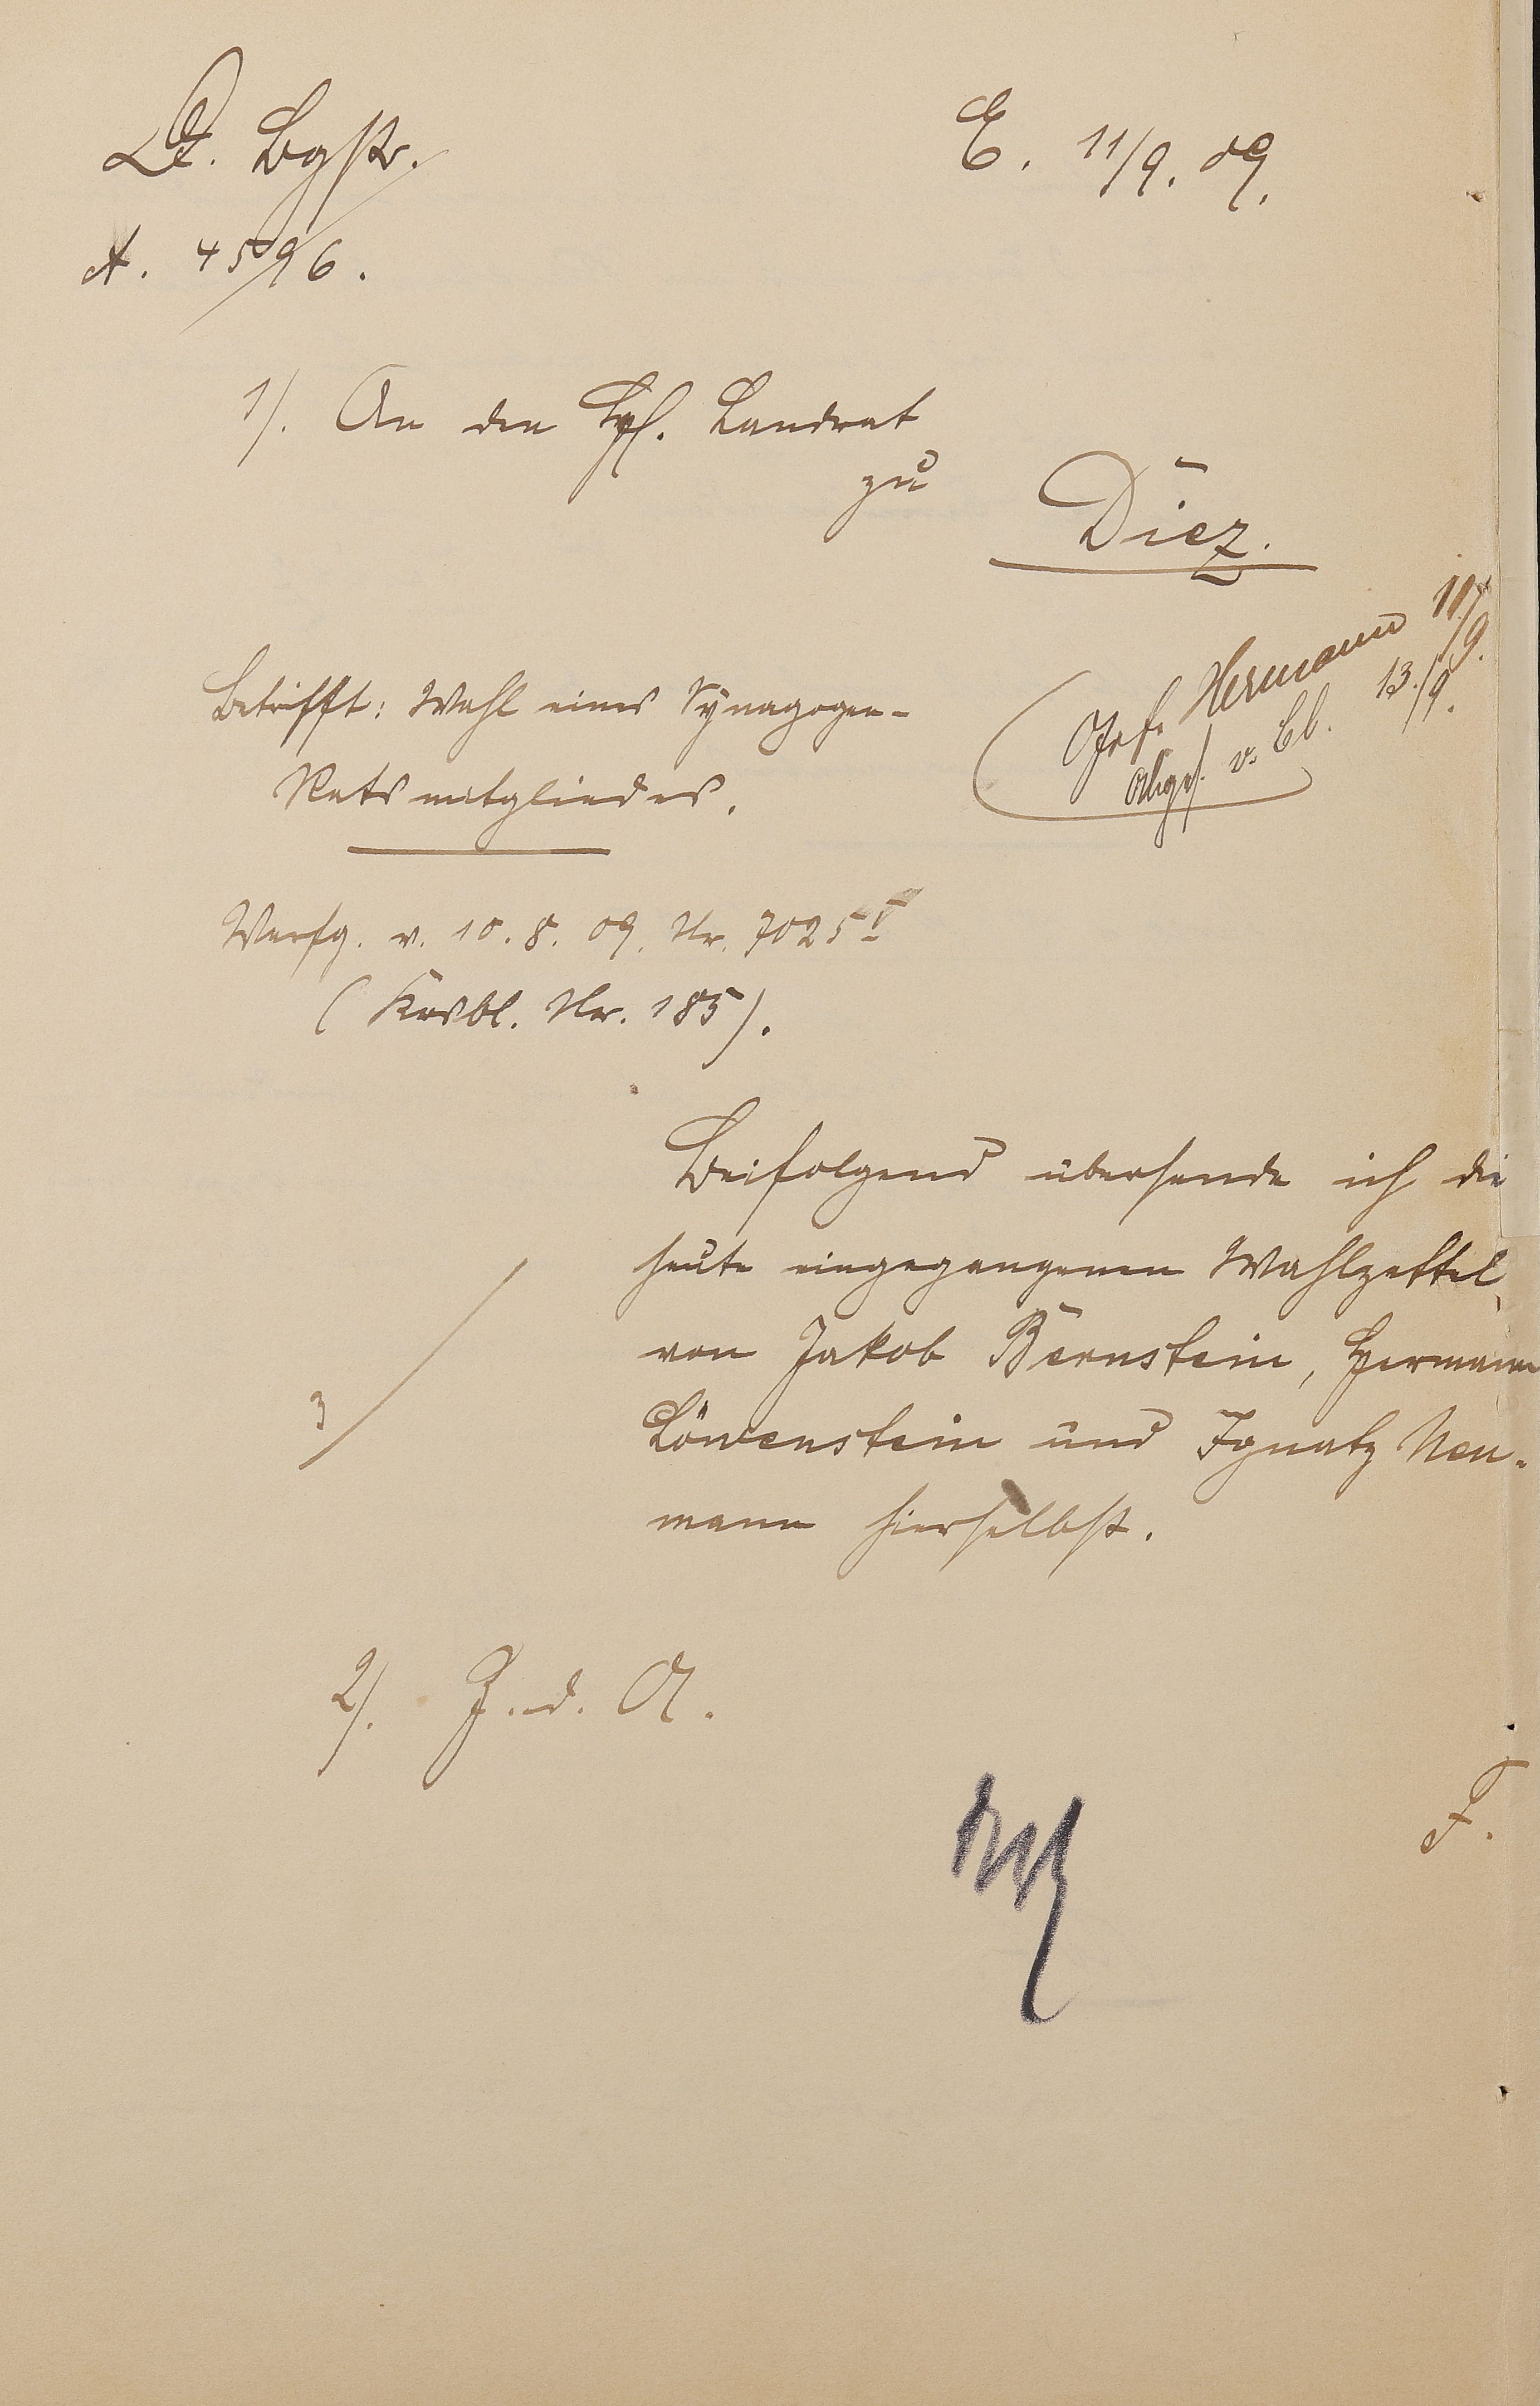 D. Bgstr.
E. 11/9. 09.
A. 4596.
1). An den Kgl. Landrat
zu
Diez.
Betrifft: Wahl eines Synagogen-
Ratsmitgliedes.
Gef. Hermann 11/9.
Abges. v. Cl. 13./9.
Verfg. v. 10. 8. 09. Nr. 7025 I
(Krsbl. Nr. 185).
Beifolgend übersende ich die
heute eingegangenen Wahlzettel
von Jakob Bernstein, Hermann
3
Löwenstein und Ignatz Neu-
mann hierselbst.
2). Z. d. A.
F.